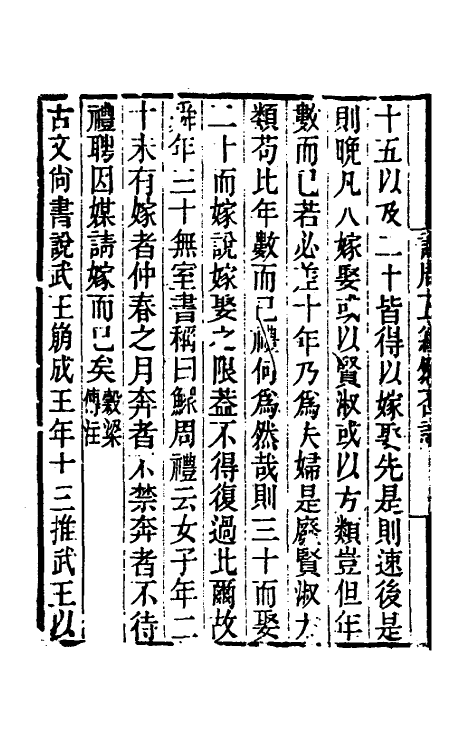 十五以及二十皆得以嫁娶先是則速後是
則晚凡人嫁娶或以賢淑或以方類豈但年
數而已若必差十年乃爲夫婦是廢賢淑方
類苟比年數而已禮何爲然哉則三十而娶
二十而嫁說嫁娶之限蓋不得復過此爾故
舜年三十無室書稱曰鰥周禮云女子年二
十未有嫁者仲春之月奔者不禁奔者不待
禮聘因媒請嫁而已矣穀梁傳注
古文尚書說武王崩成王年十三推武王以